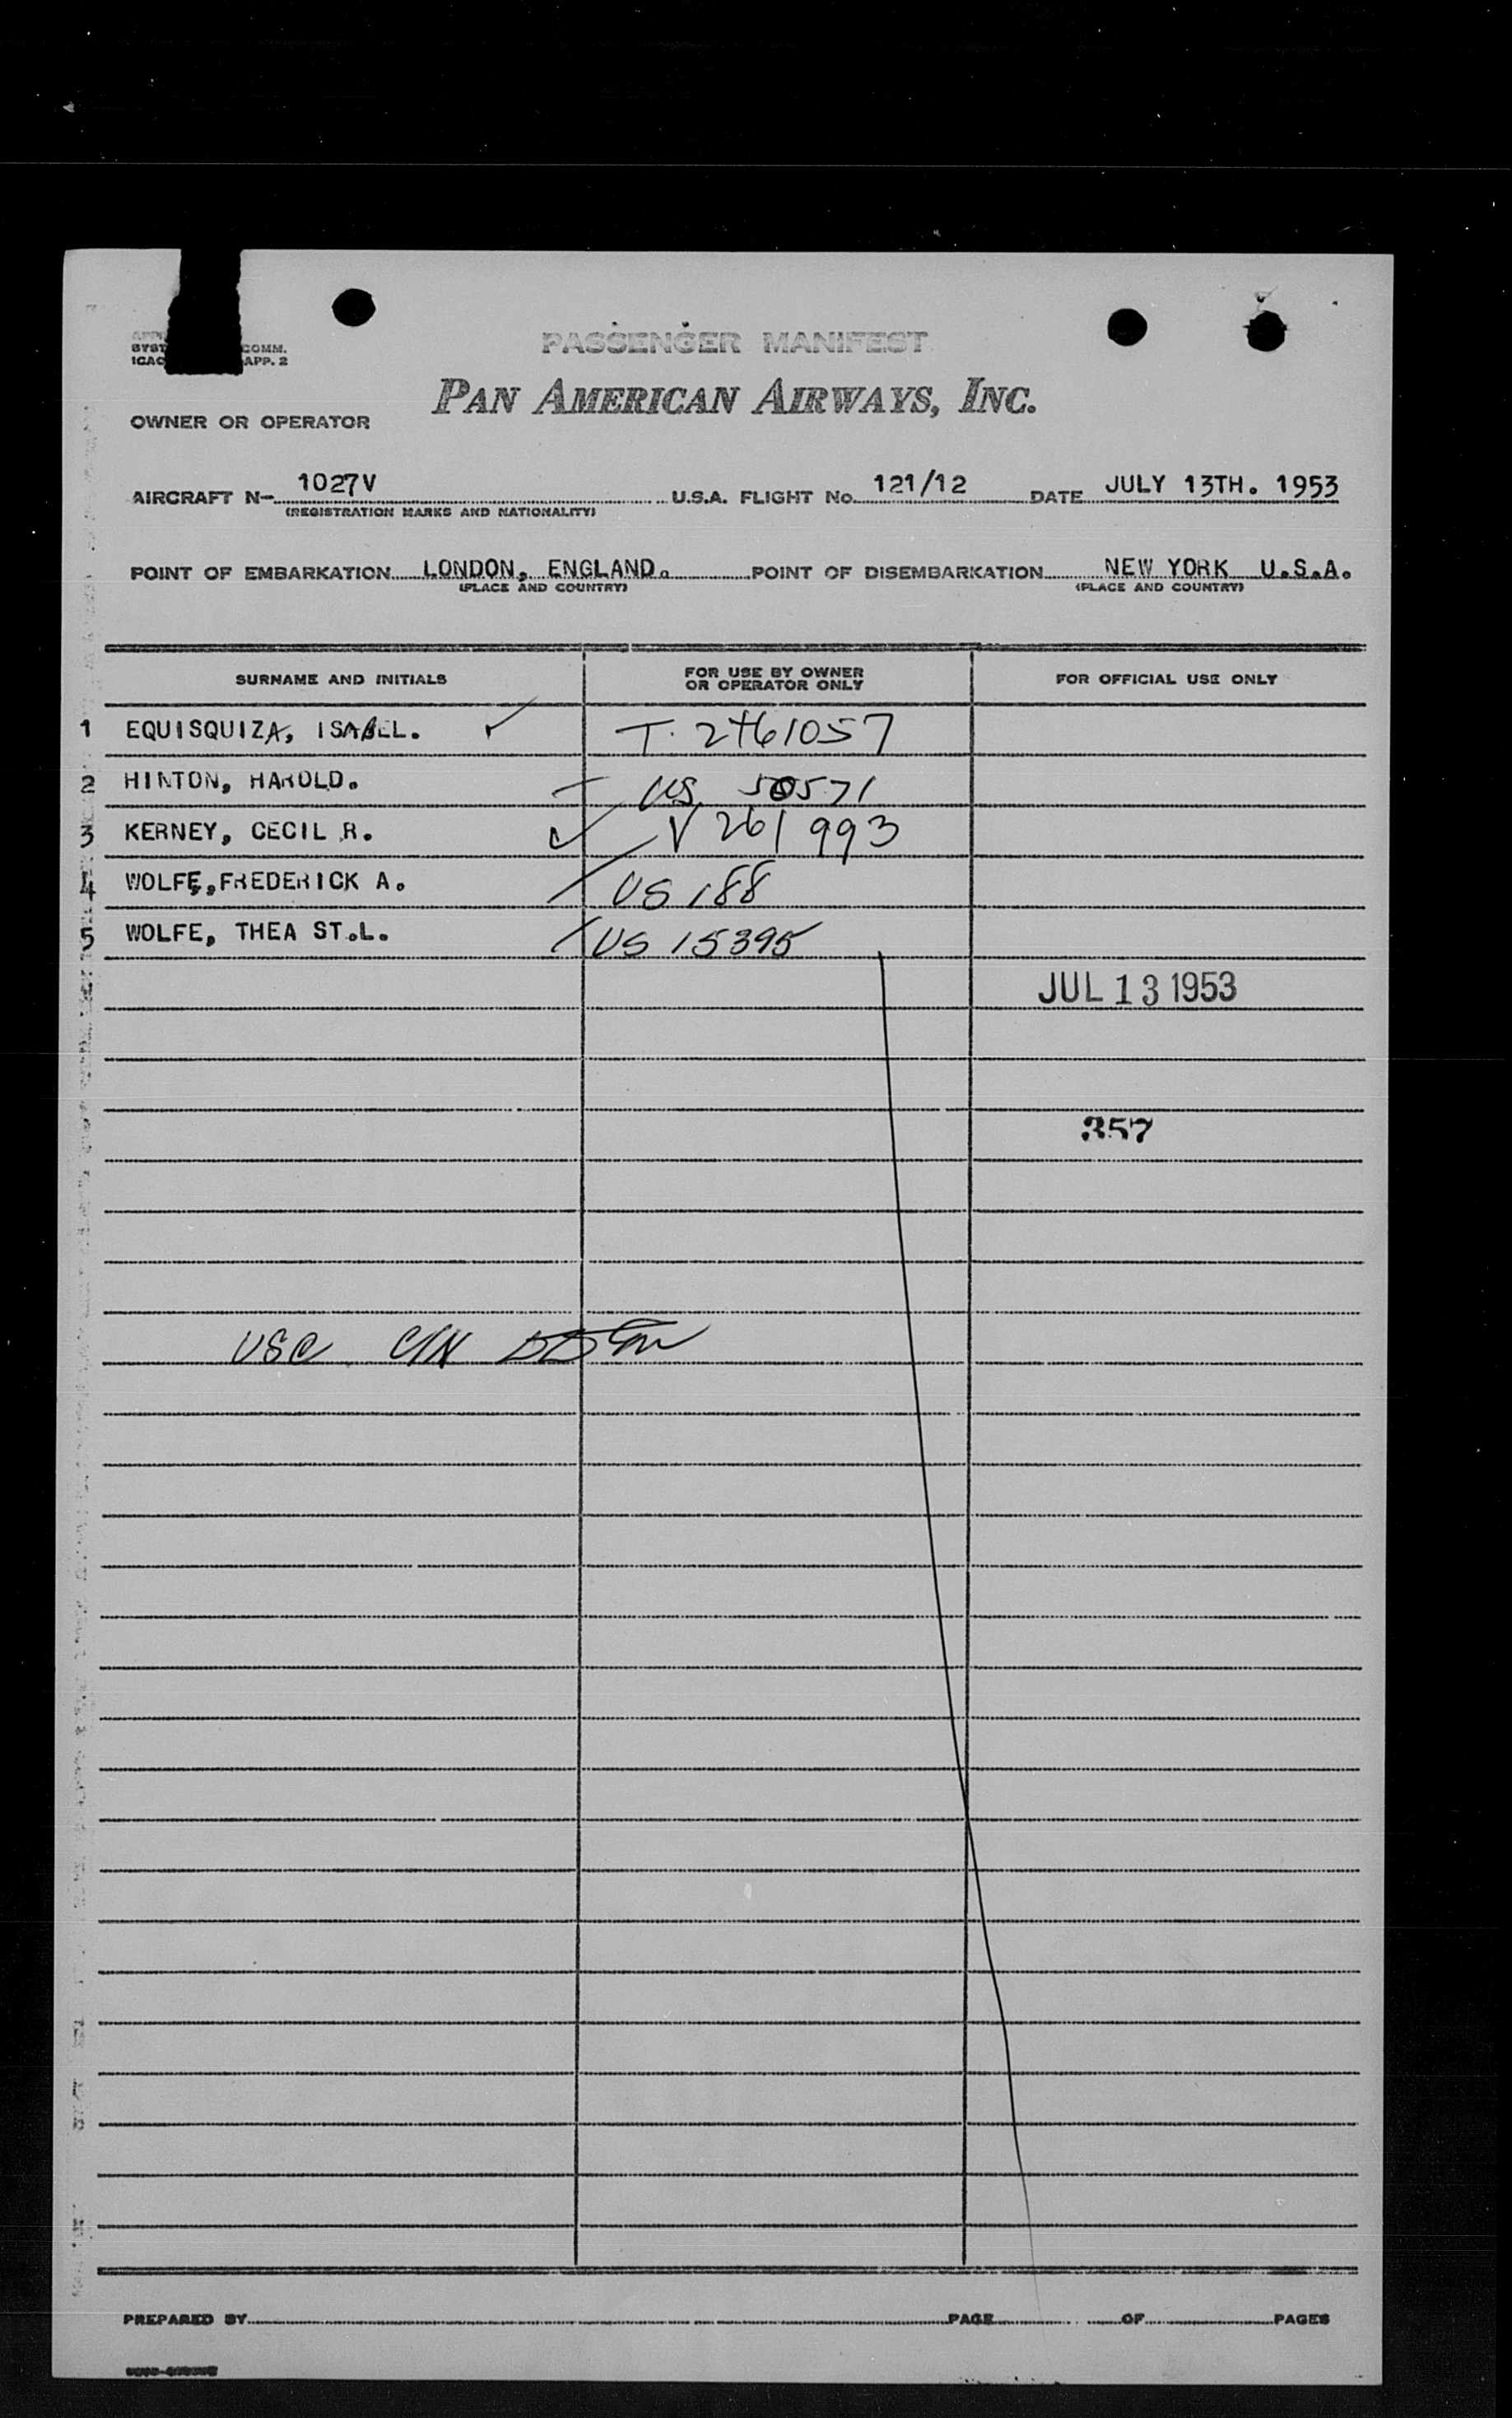 PASSENGER MANIFEST
COMM.
ICAO APP. 2
PAN AMERICAN AIRWAYS, INC.
OWNER OR OPERATOR
AIRCRAFT N- 1027V U.S.A. FLIGHT NO. 121/12 DATE JULY 13TH. 1953
(REGISTRATION MARKS AND NATIONALITY)
POINT OF EMBARKATION LONDON, ENGLAND. POINT OF DISEMBARKATION NEW YORK U.S.A.
(PLACE AND COUNTRY) (PLACE AND COUNTRY)
SURNAME AND INITIALS FOR USE BY OWNER OR OPERATOR ONLY FOR OFFICIAL USE ONLY
1 EQUISQUIZA, ISABEL. T. 2461057
2 HINTON, HAROLD. US 50571
3 KERNEY, CECIL R. V 261993
4 WOLFE, FREDERICK A. US 188
5 WOLFE, THEA ST.L. US 15395
JUL 13 1953
357
USC
PREPARED BY PAGE OF PAGES